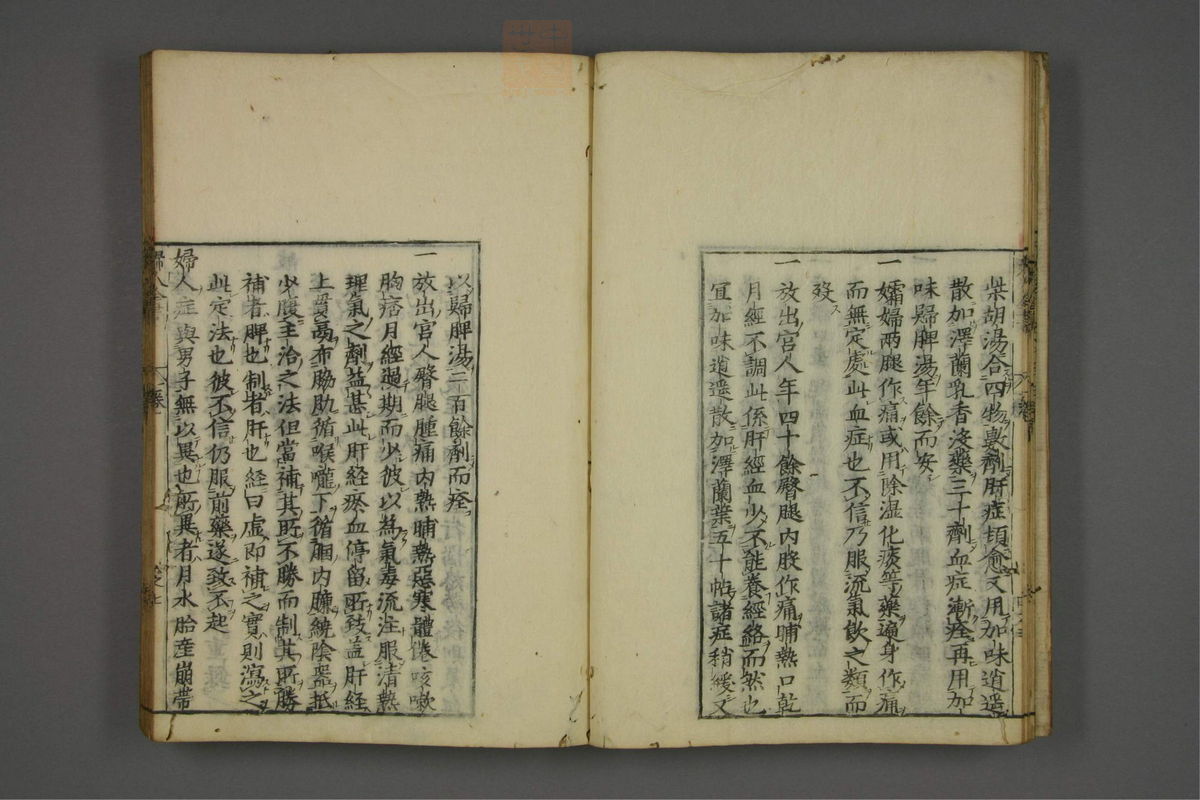 柴胡湯合四物數劑肝症頓愈又用加味逍遥
散加澤蘭乳香沒藥三十劑血症漸痊再用加
味歸脾湯年餘而安
一 孀婦兩腿作痛或用除湿化痰等藥遍身作痛
而無定處此血症也不信乃服流氣飲之類而
殁
一 放出宮人年四十餘臀腿内股作痛晡熱口乾
月經不調此係肝經血少不能養經絡而然也
宜加味逍遥散加澤蘭葉五十帖諸症稍緩又
以歸脾湯二百餘劑而痊
一 放出宮人臀腿腫痛内熱晡熱惡寒體倦咳嗽
胸痞月經過期而少彼以為氣毒流注服清熱
理氣之劑益甚此肝經瘀血停留所致蓋肝經
上貫膈布脇肋循喉嚨下循膕内臁繞陰器抵
少腹主治之法但當補其所不勝而制其所勝
補者脾也制者肝也経曰虚即補之實則瀉之
此定法也彼不信仍服前藥遂致不起
婦人症與男子無以異也所異者月水胎産崩帶